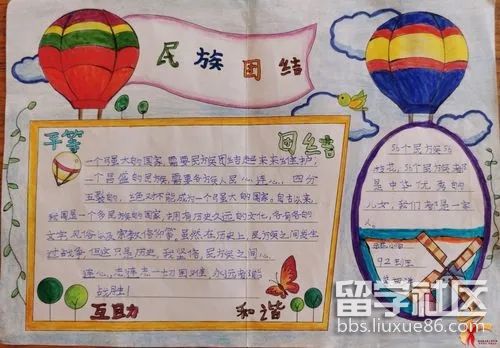 民族团结
平等
团结
一个强大的国家,需要民族团结起来来维护,
一个昌盛的民族,需要各族人民心连心,四分
五裂的,绝对不能成为一个强大的国家,自古以来,
我国是一个多民族的国家,拥有历史久远的文化,各有各的
文字,风俗以及宗教信仰等。虽然在历史上,民族之间发生
过战争,但这只是历史,我坚信,民族之间心
连心,一切困难,
战胜!
互助
和谐
56个民族56
枝花,56个民族都
是中华优秀的
儿女,我们都是一家
人。
92班
留学社区
bbs.liuxue86.com